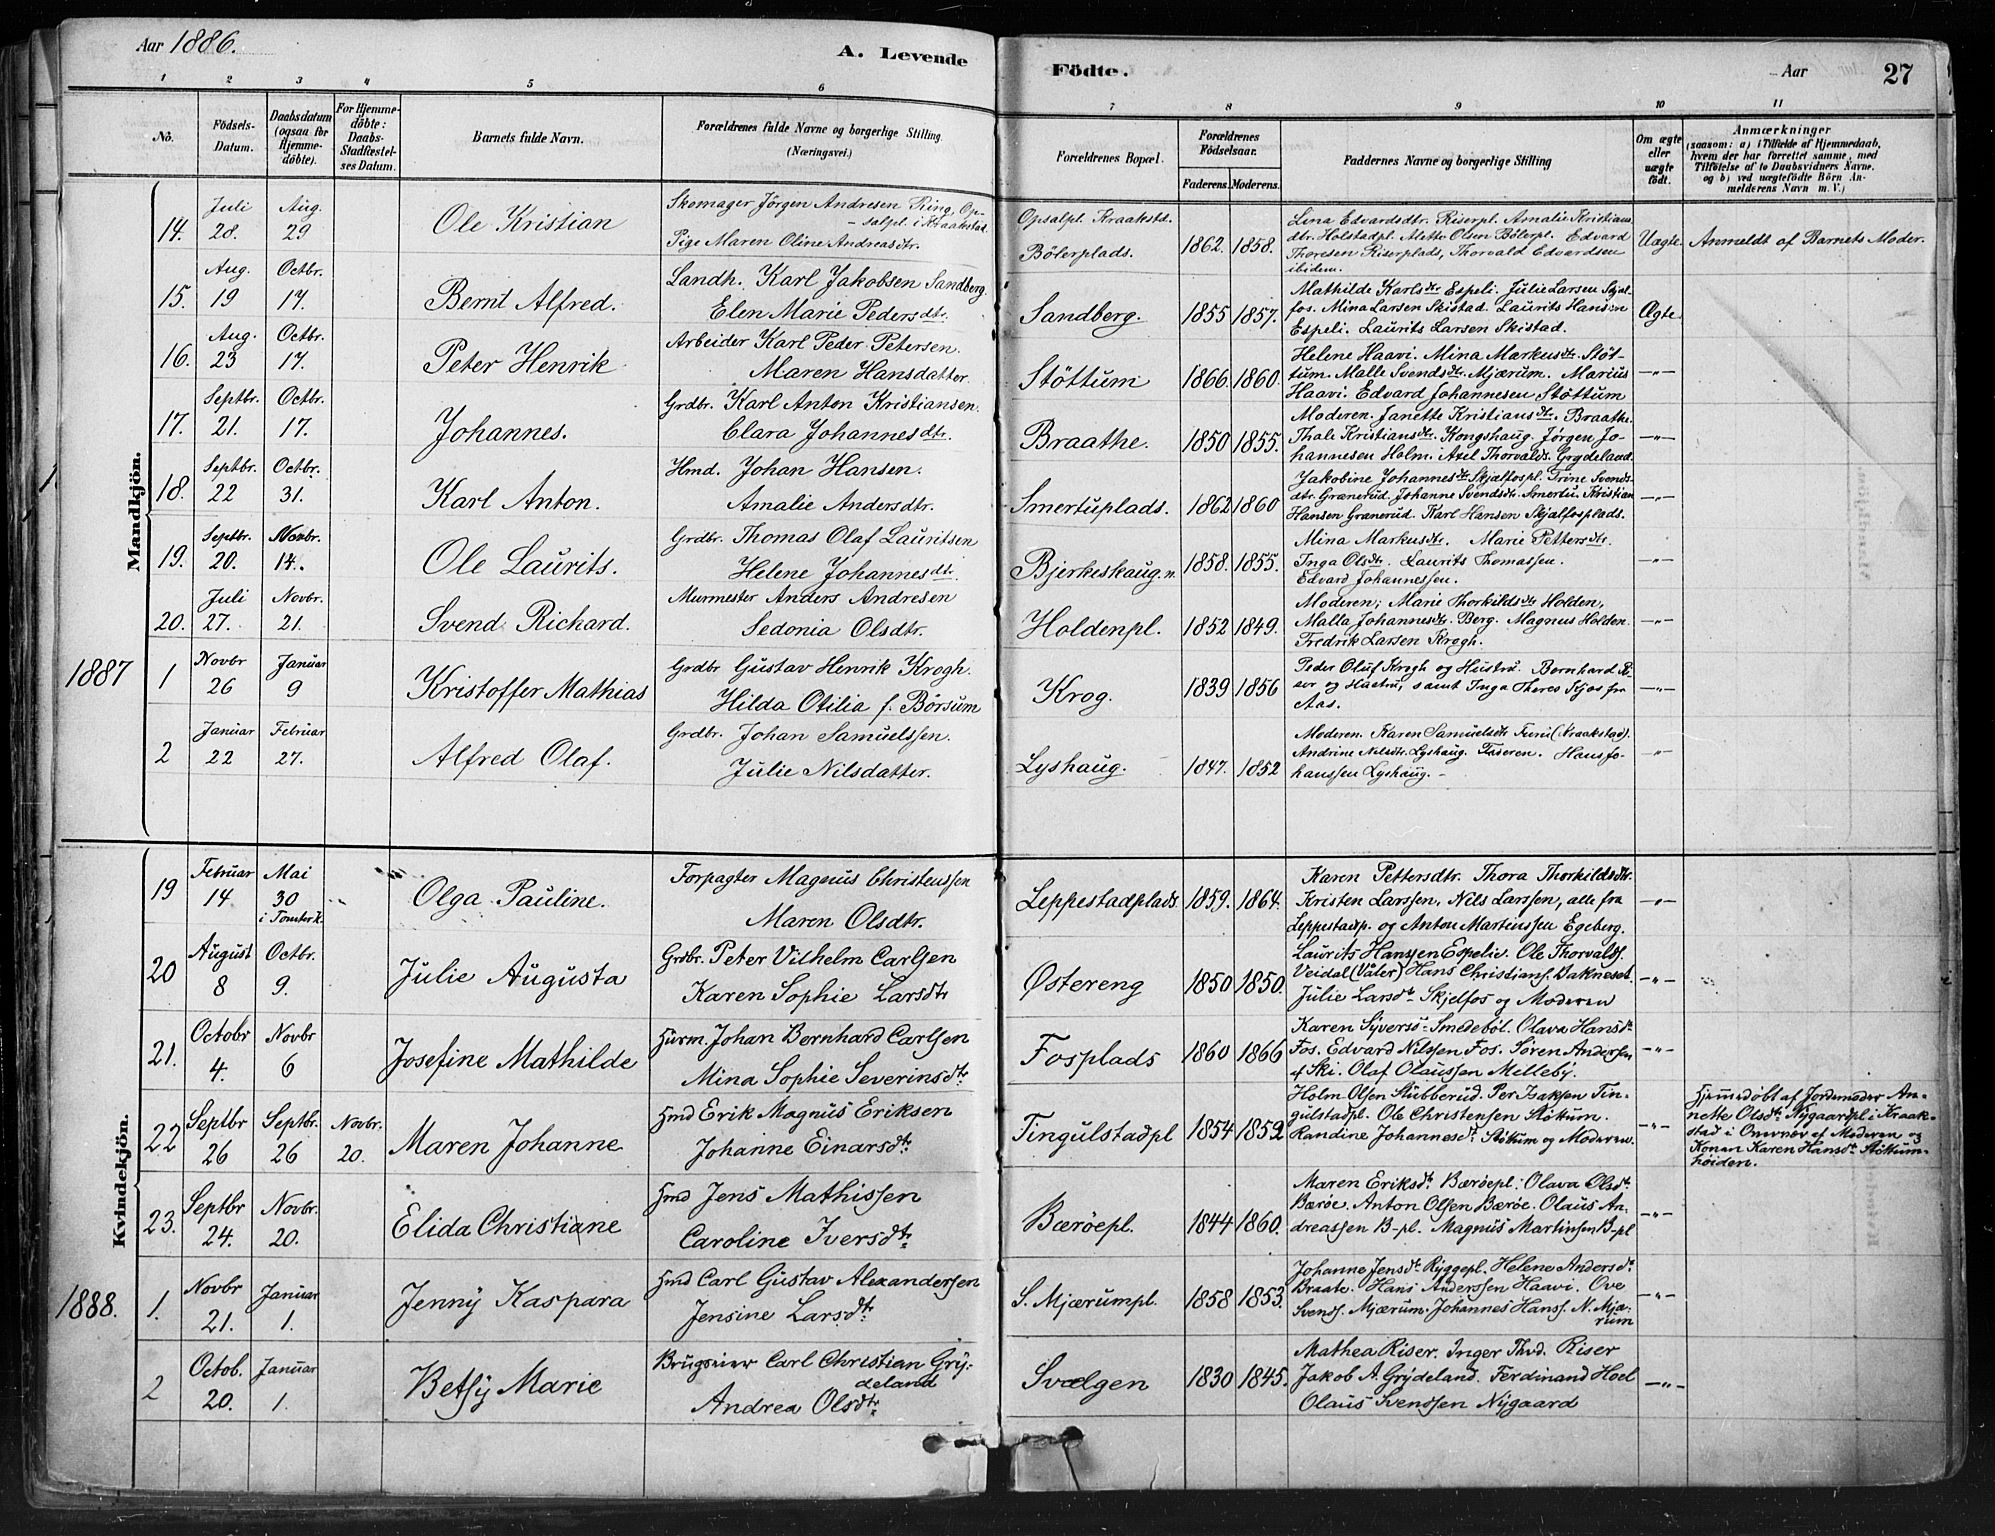 Aar 1886.
A. Levende Födte.
Aar
27
1 2 3 4 5 6 7 8 9 10 11
No.
Födsels-Datum.
Daabsdatum (ogsaa for Hjemme-döbte).
For Hjemme-döbte: Daabs-Stadfæstel-ses Datum.
Barnets fulde Navn.
Forældrenes fulde Navne og borgerlige Stilling.
(Næringsvei.)
Forældrenes Bopæl.
Forældrenes Födselsaar.
Faderens. Moderens.
Faddernes Navne og borgerlige Stilling
Om ægte eller uægte födt.
Anmærkninger
(saasom: a) i Tilfælde af Hjemmedaab, hvem der har forrettet samme, med Tilföielse af to Daabsvidners Navne. og b) ved uægtefödte Börn An-melderens Navn m. V.)
Mandkjön.
14. Juli 28. Aug. 29 Ole Kristian
Skomager Jörgen Andresen Ring, Op-
salpl. i Kraakstad.
Pige Maren Oline Andreasdtr.
Opsalpl. Kraakstd.
Bölerplads. 1862. 1858.
Lina Edvardsdtr. Riserpl. Amalie Kristians
dtr. Holstadpl. Mette Olsen Bölerpl. Edvard
Thoresen Riserplads, Thorvald Edvardsen
ibidem.
Uægte. Anmeldt af Barnets Moder.
15. Aug. 19 Octbr. 17. Bernt Alfred.
Landh. Karl Jakobsen Sandberg.
Elen Marie Pedersdtr.
Sandberg. 1855 1857.
Mathilde Karlsdtr. Espeli. Julie Larsen Skjæl-
fos. Mina Larsen Skistad. Laurits Hansen
Espeli. Laurits Larsen Skistad.
Ægte.
16. Aug. 23 Octbr. 17. Peter Henrik
Arbeider Karl Peder Petersen.
Maren Hansdatter.
Stöttum 1866. 1860.
Helene Haavi. Mina Markusdtr. Stöt-
tum. Malle Svendsdtr. Mjærum. Marius
Haavi. Edvard Johannesen Stöttum
—"—
17. Septbr. 21. Octbr. 17. Johannes.
Grdbr. Karl Anton Kristiansen.
Clara Johannesdtr.
Braathe. 1850 1855.
Moderen. Janette Kristiansdtr. Braathe.
Thale Kristiansdtr. Kongshaug. Jörgen Jo-
hannesen Holm. Axel Thorvalds. Grydeland.
—"—
18. Septbr. 22 Octbr. 31. Karl Anton.
Hmd. Johan Hansen.
Amalie Andersdtr.
Smertuplads. 1862 1860
Jakobine Johannesdtr. Skjælfospl. Trine Svends
dtr. Granerud. Johanne Svendsdtr. Smertu. Kristian
Hansen Granerud. Karl Hansen Skjælfosplads.
—"—
19. Septbr. 20. Novbr. 14. Ole Laurits.
Grdbr. Thomas Olaf Lauritsen
Helene Johannesdtr.
Bjerkeskaug. n. 1858. 1855.
Mina Markusdtr. Marie Pettersdtr.
Inga Olsdtr. Laurits Thomassen.
Edvard Johannessen.
—"—
20. Juli 27. Novbr. 21. Svend Richard.
Murmester Anders Andresen
Sedonia Olsdtr.
Holdenpl. 1852 1849.
Moderen; Marie Thorkildsdtr. Holden,
Malla Johannesdtr. Berg. Magnus Holden.
Fredrik Larsen Krogh.
—"—
1887
1 Novbr 26 Januar 9 Kristoffer Mathias
Grdbr Gustav Henrik Krogh.
Hilda Otilia f. Börsum
Krog. 1839 1856
Peder Oluf Krogh og Hustru. Bernhard
og Hustru, samt Inga Theres Skjos fra
Aas.
—"—
2 Januar 22 Februar 27. Alfred Olaf.
Grdbr. Johan Samuelssen.
Julie Nilsdatter.
Lyshaug. 1847. 1852
Moderen. Karen Samuelsdtr Furu (Kraakstad).
Andrine Nilsdtr. Lyshaug. Faderen. Hans Jo-
hanssen Lyshaug.
—"—
Kvindekjön.
19 Februar 14 Mai 30 i Tomter K. Olga Pauline.
Forpagter Magnus Christenssen
Maren Olsdtr.
Leppestadplads. 1859. 1864.
Karen Pettersdtr. Thora Thorkildsdtr.
Kristen Larssen, Nils Larssen, alle fra
Leppestadp. og Anton Martinssen Egeberg.
—"—
20 August 8 Octbr. 9. Julie Augusta
Grdbr. Peter Vilhelm Carlsen
Karen Sophie Larsdtr
Østereng 1850 1850.
Laurits Hanssen Espelie. Ole Thorvalds.
Veidal (Våler) Hans Christians. Dakneset.
Julie Larsdtr Skjelfos og Moderen
—"—
21. Octobr 4. Novbr 6 Josefine Mathilde
Husm. Johan Bernhard Carlsen
Mina Sophie Severinsdtr
Fosplads 1860 1866
Karen Syvers. Smedeböl. Olava Hansdtr
Fos. Edvard Nilssen Fos. Søren Andersen
af Ski. Olaf Olaussen Melleby.
—"—
22 Septbr 26 Septbr. 26 Novbr. 20. Maren Johanne
Hmd Erik Magnus Eriksen
Johanne Einarsdtr.
Tingulstadpl 1854 1852
Holm Olsen Stubberud. Per Isaksen Tin-
gulstadpl. Ole Christensen Støtum.
Randine Johannesdtr Støtum og Moderen.
—"—
Hjemmedøbt af Jordemoder An-
nette Olsdtr Nygaardpl i Kraak-
stad i Onsvær af Moderen og
Konen Karen Hansdtr Støttum-
høiden.
23. Septbr 24. Novbr. 20. Elida Christiane
Hmd Jens Mathissen
Caroline Iversdtr
Bærøepl. 1844 1860.
Maren Eriksdtr Bærøepl. Olava Olsdtr
Bærøe. Anton Olsen Bærøe. Olaus An-
dreassen B-pl. Magnus Martinsen B-pl
—"—
1888.
1. Novbr 21. Januar 1. Jenny Kaspara
Hmd Carl Gustav Alexandersen
Jensine Larsdtr
S. Mjærumpl. 1858 1853.
Johanne Jensdtr Ryggepl. Helene Andersdtr
Braate. Hans Anderssen Haavi. Ove
Svends. Mjærum. Johannes Hanss. N. Mjæ-
rum
—"—
2 Octob. 20. Januar 1. Betsy Marie
Brugseier Carl Christian Gry-
deland
Andrea Olsdtr
Svælgen 1830 1845.
Mathea Riser. Inger Thvd. Riser
Jakob A. Grydeland. Ferdinand Hoel
Olaus Svenssen Nygaard
—"—